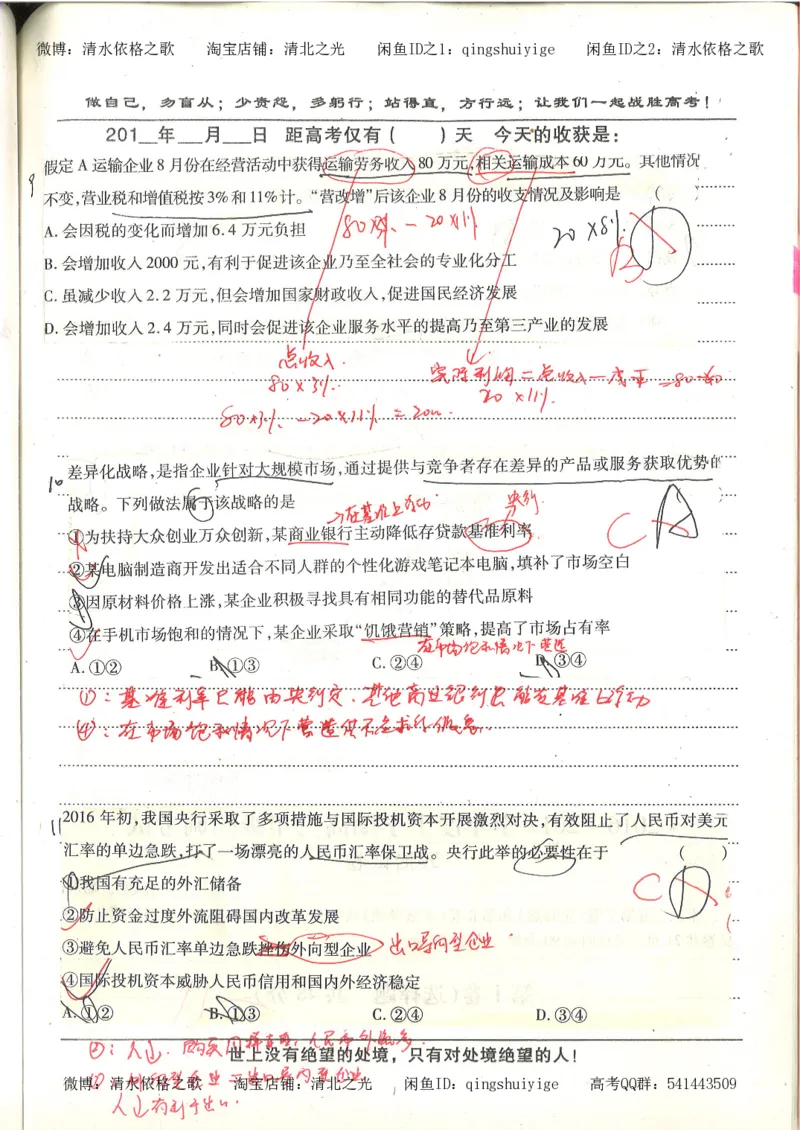 微博：清水依格之歌 淘宝店铺：清北之光 闲鱼ID之1：qingshuiyige 闲鱼ID之2：清水依格之歌
做自己，勿盲从；少责怨，多躬行；站得直，方行远；让我们一起战胜高考！
201__年___月___日 距高考仅有（ ）天 今天的收获是：
9
假定A运输企业8月份在经营活动中获得运输劳务收入80万元,相关运输成本60万元。其他情况
不变,营业税和增值税按3%和11%计。“营改增”后该企业8月份的收支情况及影响是 （ ）
A.会因税的变化而增加6.4万元负担
80×3% － 20×11%
20×8%
B.会增加收入2000元,有利于促进该企业乃至全社会的专业化分工
C.虽减少收入2.2万元,但会增加国家财政收入,促进国民经济发展
D.会增加收入2.4万元,同时会促进该企业服务水平的提高乃至第三产业的发展
总收入
80×3%
实际利润＝总收入－成本＝80－60
20×11%
80×3%－20×11%＝
10
差异化战略,是指企业针对大规模市场,通过提供与竞争者存在差异的产品或服务获取优势的
战略。下列做法属于该战略的是
→在基准上浮动
央行
C A
①为扶持大众创业万众创新,某商业银行主动降低存贷款基准利率
②某电脑制造商开发出适合不同人群的个性化游戏笔记本电脑,填补了市场空白
③因原材料价格上涨,某企业积极寻找具有相同功能的替代品原料
④在手机市场饱和的情况下,某企业采取“饥饿营销”策略,提高了市场占有率
在市场饱和情况下营造
A.①② B.①③ C.②④ D.③④
①：基准利率只能由央行定，其他商业银行只能在基准上浮动
④：在市场饱和情况下营造供不应求
11
2016年初,我国央行采取了多项措施与国际投机资本开展激烈对决,有效阻止了人民币对美元
汇率的单边急跌,打了一场漂亮的人民币汇率保卫战。央行此举的必要性在于 （ ）
①我国有充足的外汇储备
C
②防止资金过度外流阻碍国内改革发展
③避免人民币汇率单边急跌挫伤外向型企业
出口导向型企业
④国际投机资本威胁人民币信用和国内外经济稳定
A.①② B.①③ C.②④ D.③④
世上没有绝望的处境，只有对处境绝望的人！
微博：清水依格之歌 淘宝店铺：清北之光 闲鱼ID：qingshuiyige 高考QQ群：541443509